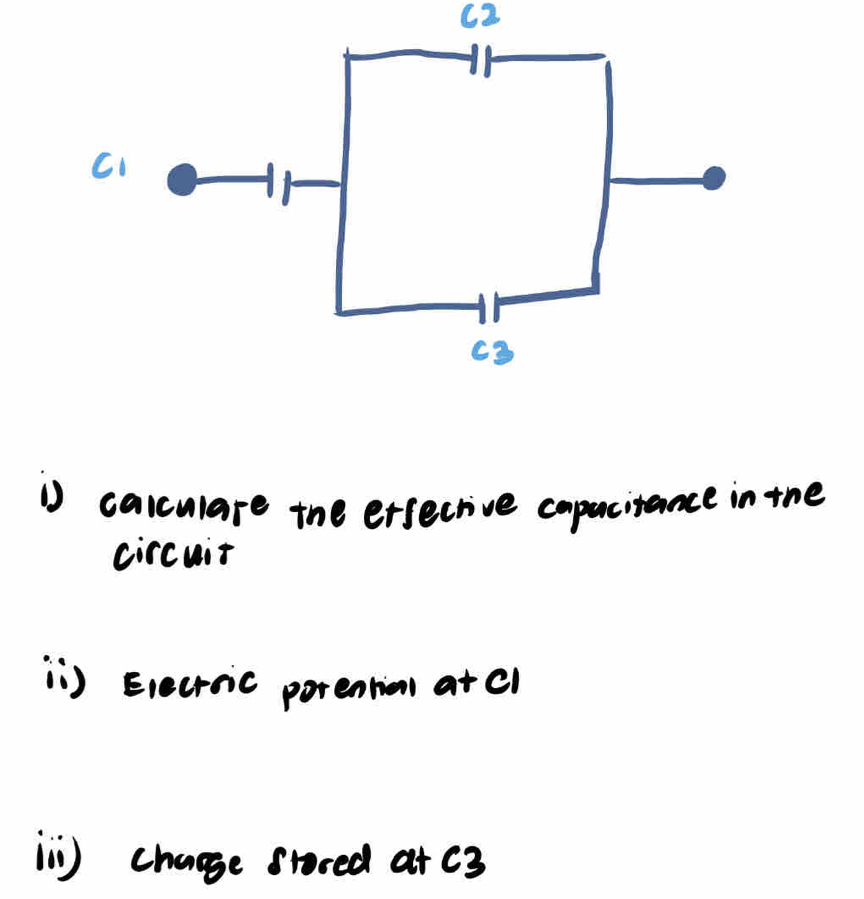 C2
C1
C3
i) calculate the effective capacitance in the
circuit
ii) Electric potential at C1
iii) Charge stored at C3